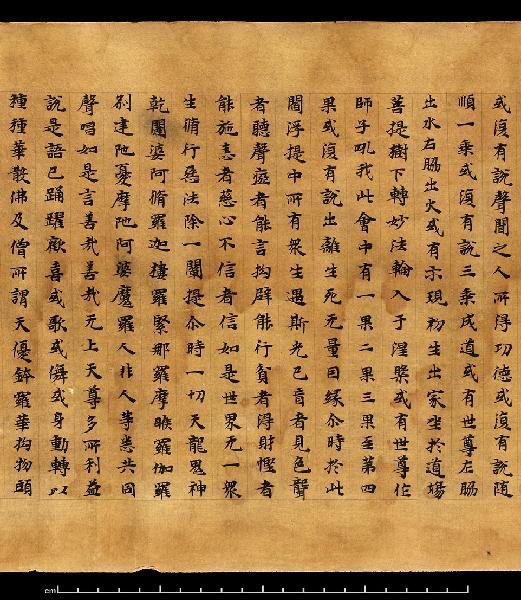 或復有說聲聞之人所得功德或復有說随
順一乘或復有說三乘成道或有世尊左脇
出水右脇出火或有示現初生出家坐於道場
菩提樹下轉妙法輪入于涅槃或有世尊作
師子吼我此會中有一果二果三果至第四
果或復有說出離生死无量因緣尒時於此
閻浮提中所有衆生遇斯光已盲者見色聾
者聽聲瘂者能言拘躃能行貧者得財慳者
能施恚者慈心不信者信如是世界无一衆
生脩行惡法除一闡提尒時一切天龍鬼神
乾闥婆阿脩羅迦樓羅緊那羅摩睺羅伽羅
剎建陁憂摩陁阿婆魔羅人非人等悉共同
聲唱如是言善哉善哉无上天尊多所利益
說是語已踊躍歡喜或歌或儛或身動轉以
種種華散佛及僧所謂天優鉢羅華拘物頭